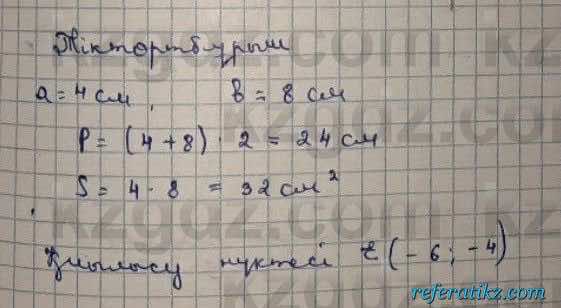 Тіктөртбұрыш
a = 4 см, в = 8 см
P = (4 + 8) · 2 = 24 см
S = 4 · 8 = 32 см²
Қиылысу нүктесі E (– 6 ; – 4)
referatikz.com